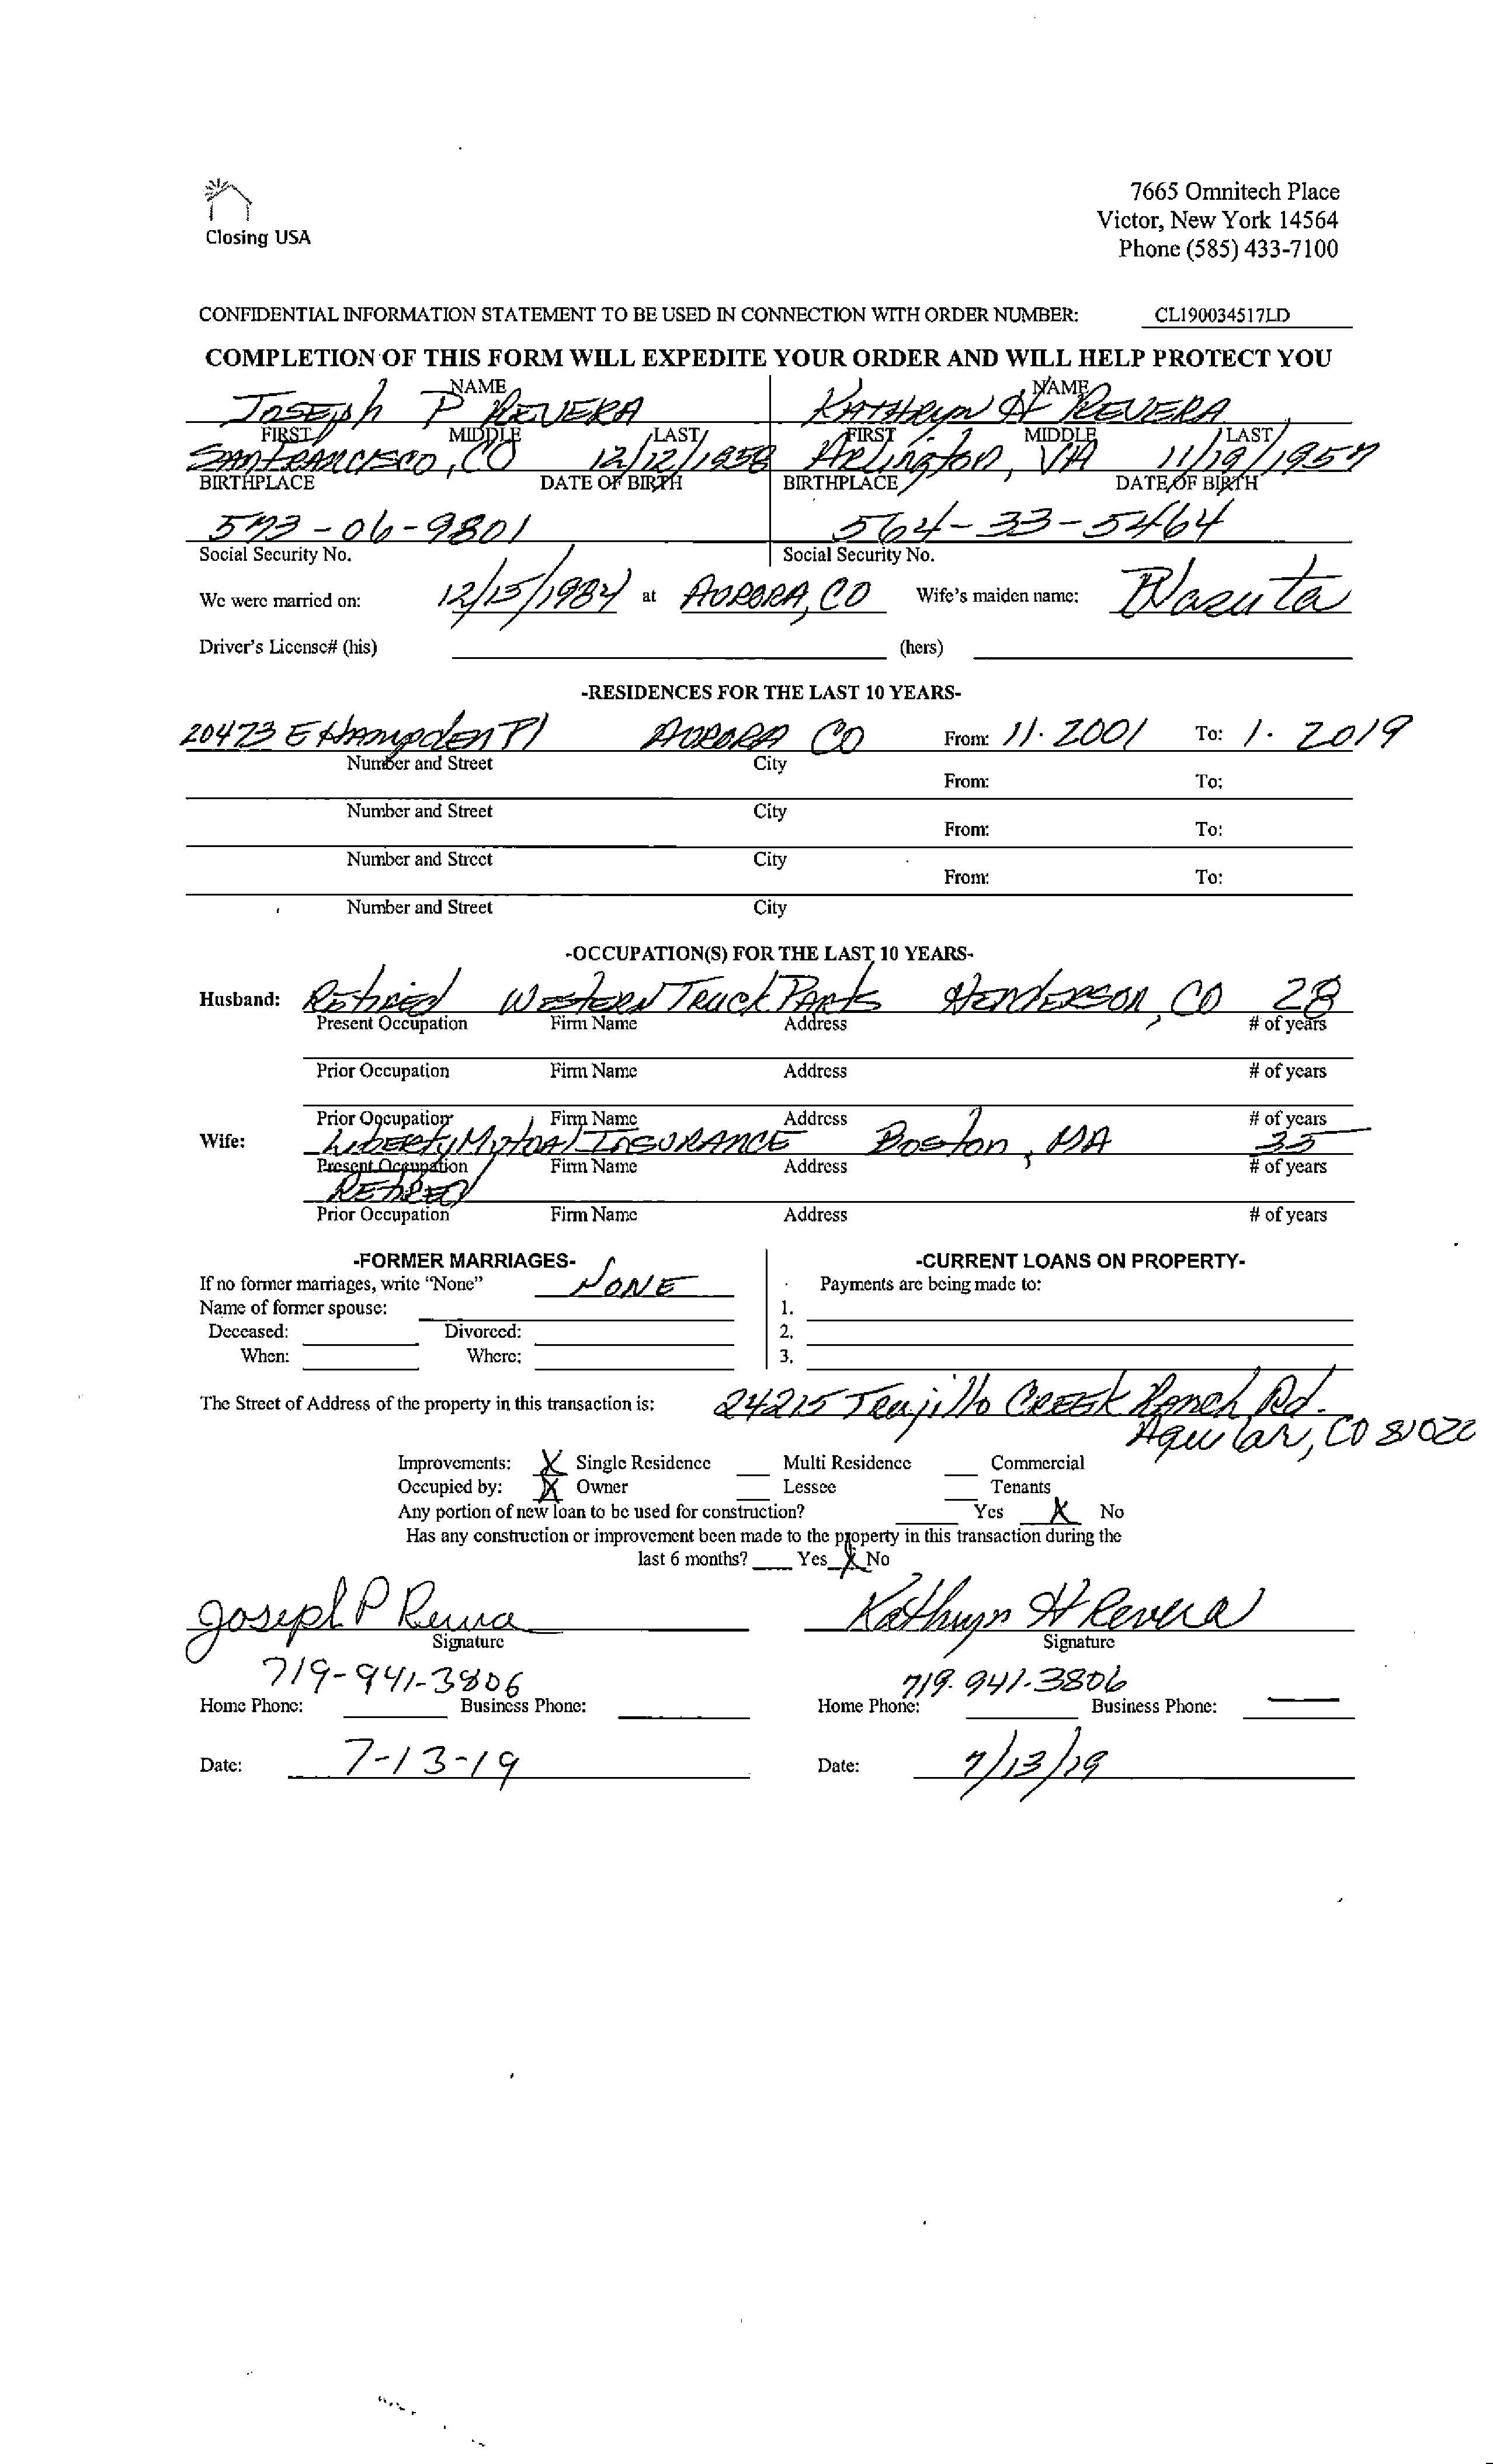 Closing USA
7665 Omnitech Place
Victor, New York 14564
Phone (585) 433-7100
CONFIDENTIAL INFORMATION STATEMENT TO BE USED IN CONNECTION WITH ORDER NUMBER: CL190034517LD
COMPLETION OF THIS FORM WILL EXPEDITE YOUR ORDER AND WILL HELP PROTECT YOU
NAME NAME
Joseph P REVERA KATHRYN H REVERA
FIRST MIDDLE LAST FIRST MIDDLE LAST
SAN FRANCISCO, CO 12/12/1958 Arlington, VA 11/19/1957
BIRTHPLACE DATE OF BIRTH BIRTHPLACE DATE OF BIRTH
573-06-9801 564-33-5464
Social Security No. Social Security No.
We were married on: 12/15/1984 at AURORA, CO Wife's maiden name: Wasuta
Driver's License# (his) (hers)
-RESIDENCES FOR THE LAST 10 YEARS-
20473 E Hampden Pl AURORA CO From: 11.2001 To: 1.2019
Number and Street City
From: To:
Number and Street City
From: To:
Number and Street City
From: To:
Number and Street City
-OCCUPATION(S) FOR THE LAST 10 YEARS-
Husband: Retired Western Truck Parts HENDERSON, CO 28
Present Occupation Firm Name Address # of years
Prior Occupation Firm Name Address # of years
Prior Occupation Firm Name Address # of years
Wife: Liberty Mutual INSURANCE Boston, MA 35
Present Occupation Firm Name Address # of years
RETIRED
Prior Occupation Firm Name Address # of years
-FORMER MARRIAGES- -CURRENT LOANS ON PROPERTY-
If no former marriages, write "None" NONE Payments are being made to:
Name of former spouse: 1.
Deceased: Divorced: 2.
When: Where: 3.
The Street of Address of the property in this transaction is: 24215 Trujillo CREEK Ranch Rd.
Aguilar, CO 81020
Improvements: X Single Residence Multi Residence Commercial
Occupied by: X Owner Lessee Tenants
Any portion of new loan to be used for construction? Yes X No
Has any construction or improvement been made to the property in this transaction during the
last 6 months? Yes X No
Joseph P Revera Kathryn H Revera
Signature Signature
719-941-3806 719.941.3806
Home Phone: Business Phone: Home Phone: Business Phone:
Date: 7-13-19 Date: 7/13/19